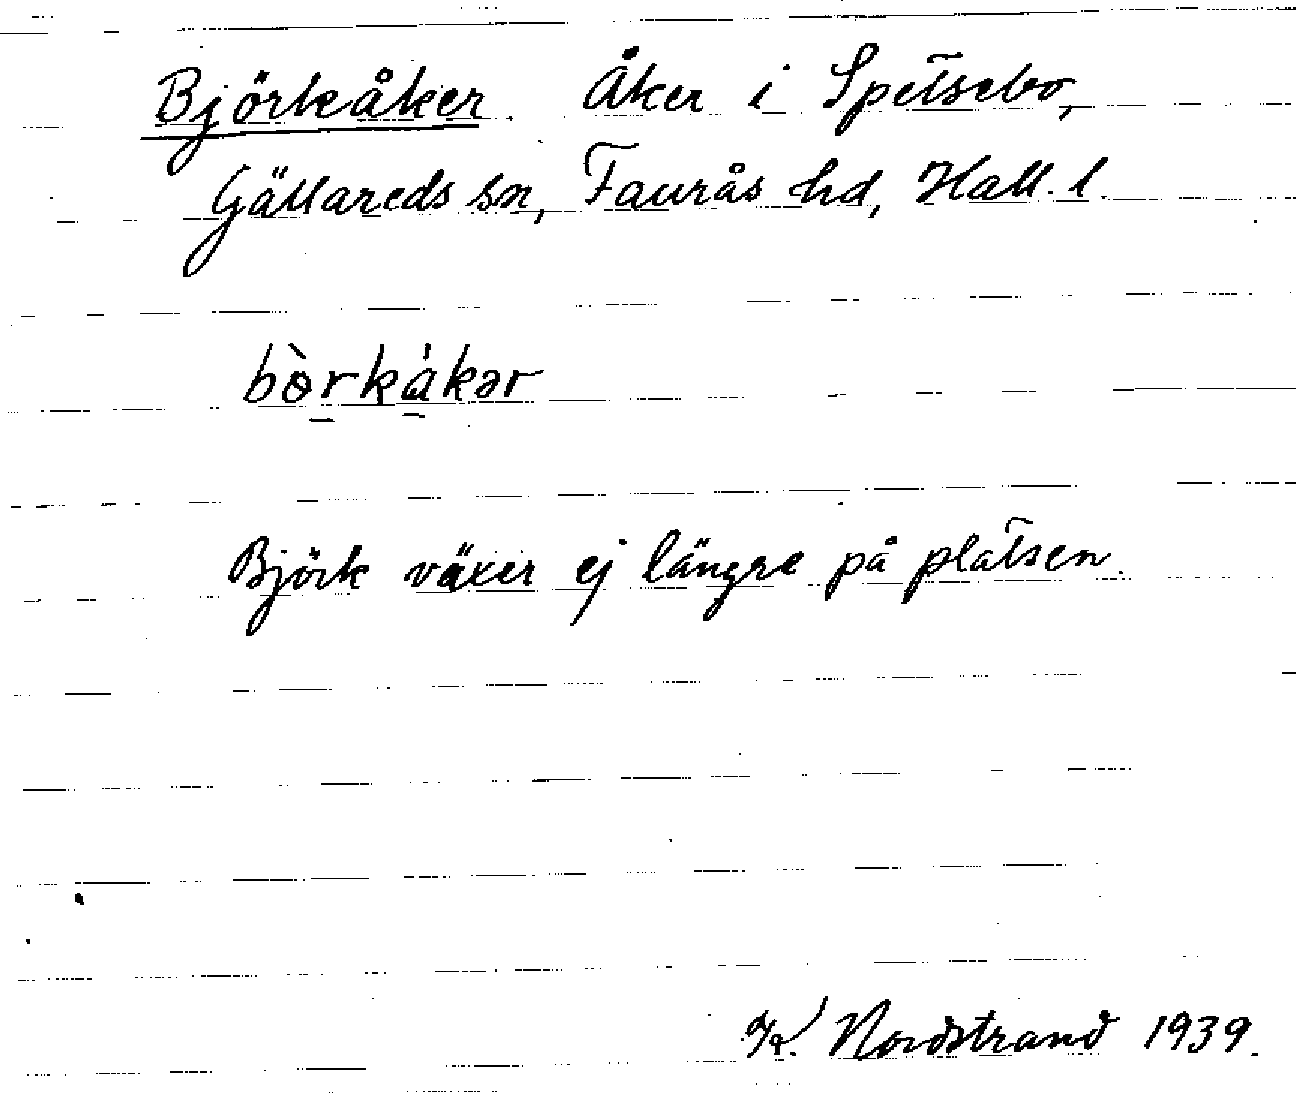 Björkåker. Åker i Spetsebo,
Gällareds sn, Faurås hd, Hall. l.
bɵ̀rkåkər
Björk växer ej längre på platsen.
Nordstrand 1939.